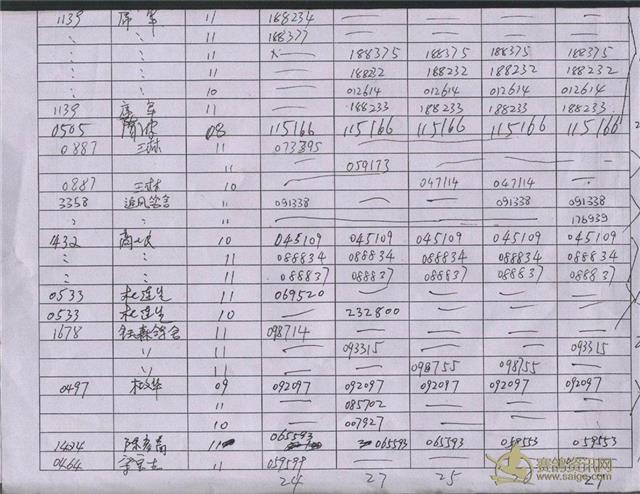 1139 席军 11 188234 — — — —
〃 〃 11 188377 — — — —
〃 〃 11 x— 188375 188375 188375 188375
〃 〃 11 — 188232 188232 188232 188232
〃 〃 10 — 012614 012614 012614 012614
1139 席军 11 — 188233 188233 188233 188233
0505 08 115166 115166 115166 115166 115166
0887 三林 11 073395
11 — 059173 —
0887 三林 10 — — 047114 047114 —
3358 追风鸽舍 11 091338 — — 091338 091338
〃 〃 11 — 176939
1432 10 045109 045109 045109 045109 045109
〃 〃 11 088834 088834 088834 088834 088834
〃 〃 11 088837 088837 088837 088837 088837
0533 杜连生 11 069520 — — — —
0533 杜连生 10 — 232800 — — —
1678 鸽舍 11 098714 — — — —
〃 11 — 093315 — — 093315
〃 11 — — 098755 098755 —
0497 09 092097 092097 092097 092097 092097
11 — 085702 — — —
10 — 007927 — — —
1424 11 065593 065593 065593
0464 11 059599 — — — —
24 27 25
赛鸽资讯网
www.saige.com